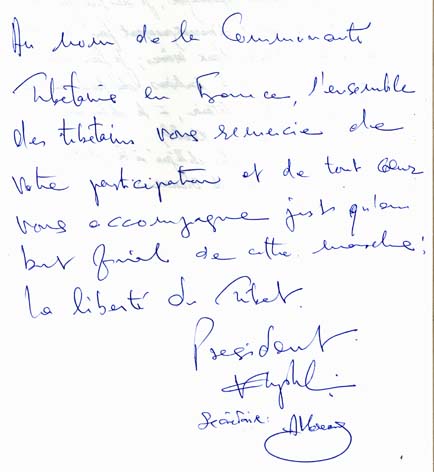 Au nom de la Communauté
Tibétaine en France, l'ensemble
des tibétains vous remercie de
votre participation et de tout coeur
vous accompagne just qu'au
but final de cette marche:
la liberté du Tibet.
President
Secrétaire: